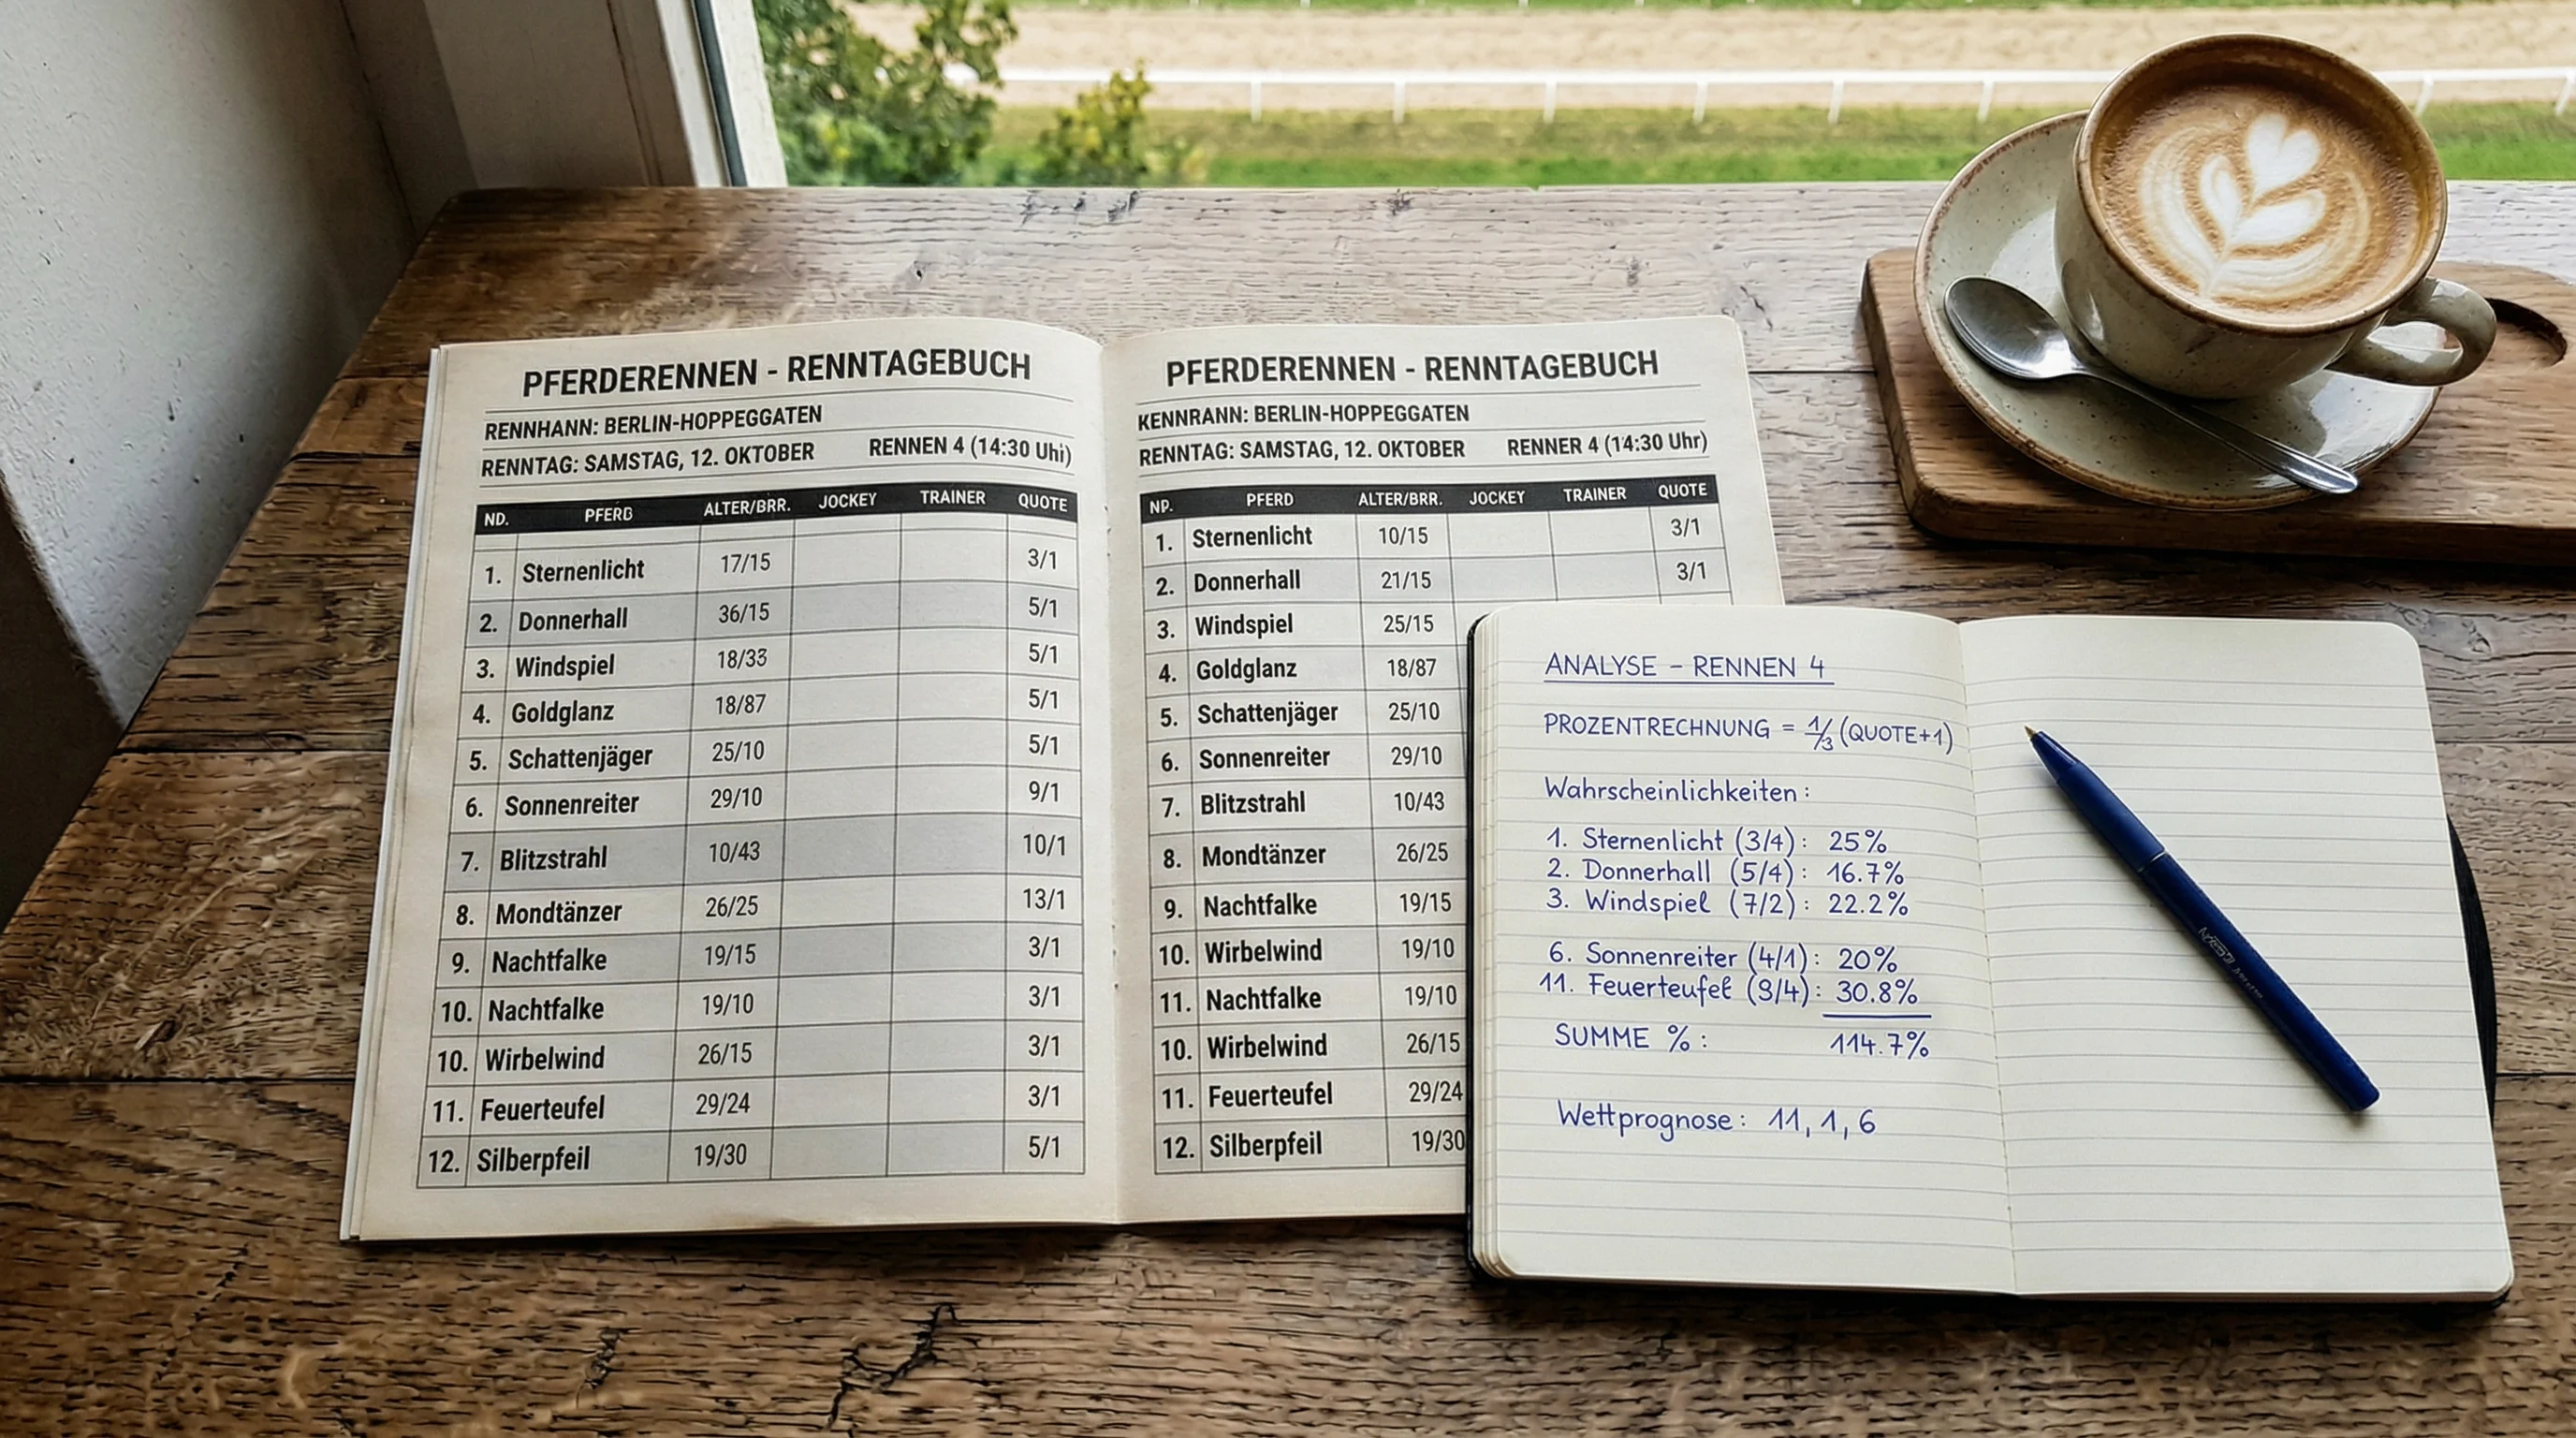 PFERDERENNEN - RENNTAGEBUCH
RENNHANN: BERLIN-HOPPEGGATEN
RENNTAG: SAMSTAG, 12. OKTOBER RENNEN 4 (14:30 Uhi)
ND. PFERD ALTER/BRR. JOCKEY TRAINER QUOTE
1. Sternenlicht 17/15 3/1
2. Donnerhall 36/15 5/1
3. Windspiel 18/33 5/1
4. Goldglanz 18/87 5/1
5. Schattenjäger 25/10 5/1
6. Sonnenreiter 29/10 9/1
7. Blitzstrahl 10/43 10/1
8. Mondtänzer 26/25 13/1
9. Nachtfalke 19/15 3/1
10. Nachtfalke 19/10 3/1
10. Wirbelwind 26/15 3/1
11. Feuerteufel 29/24 3/1
12. Silberpfeil 19/30 5/1
PFERDERENNEN - RENNTAGEBUCH
KENNRANN: BERLIN-HOPPEGGATEN
RENNTAG: SAMSTAG, 12. OKTOBER RENNER 4 (14:30 Uhr)
NP. PFERD ALTER/BRR. JOCKEY TRAINER QUOTE
1. Sternenlicht 10/15 3/1
2. Donnerhall 21/15 3/1
3. Windspiel 25/15
4. Goldglanz 18/87
5. Schattenjäger 25/10
6. Sonnenreiter 29/10
7. Blitzstrahl 10/43
8. Mondtänzer 26/25
9. Nachtfalke 19/15
10. Wirbelwind 19/10
11. Nachtfalke 19/10
10. Wirbelwind 26/15
11. Feuerteufel 29/24
12. Silberpfeil 19/30
ANALYSE – RENNEN 4
PROZENTRECHNUNG = 1/3 (QUOTE+1)
Wahrscheinlichkeiten:
1. Sternenlicht (3/4): 25%
2. Donnerhall (5/4): 16.7%
3. Windspiel (7/2): 22.2%
6. Sonnenreiter (4/1): 20%
11. Feuerteufel (9/4): 30.8%
SUMME %: 114.7%
Wettprognose: 11, 1, 6